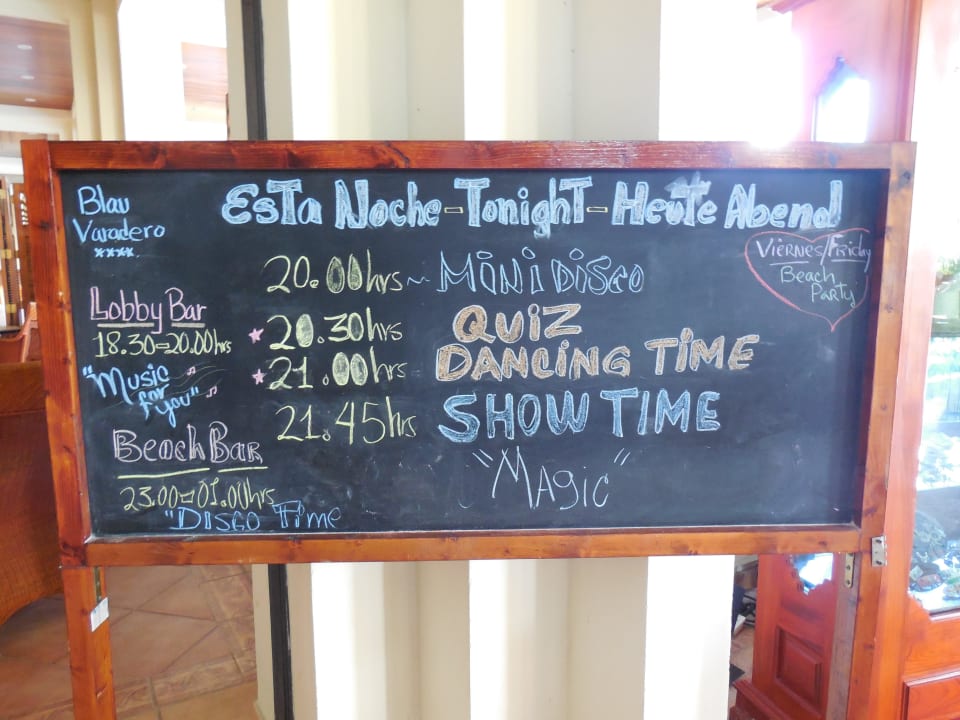 Blau
Varadero
****
EsTa Noche - Tonight - Heute Abend
Lobby Bar
18.30=20.00hrs
"Music
for
you"
Beach Bar
23.00=01.00hrs
"Disco Time
20.00hrs ~ MiNi Disco
20.30hrs QUIZ
21.00hrs DANCiNG TiME
21.45hrs SHOW TiME
"Magic"
Viernes/Friday
Beach
Party